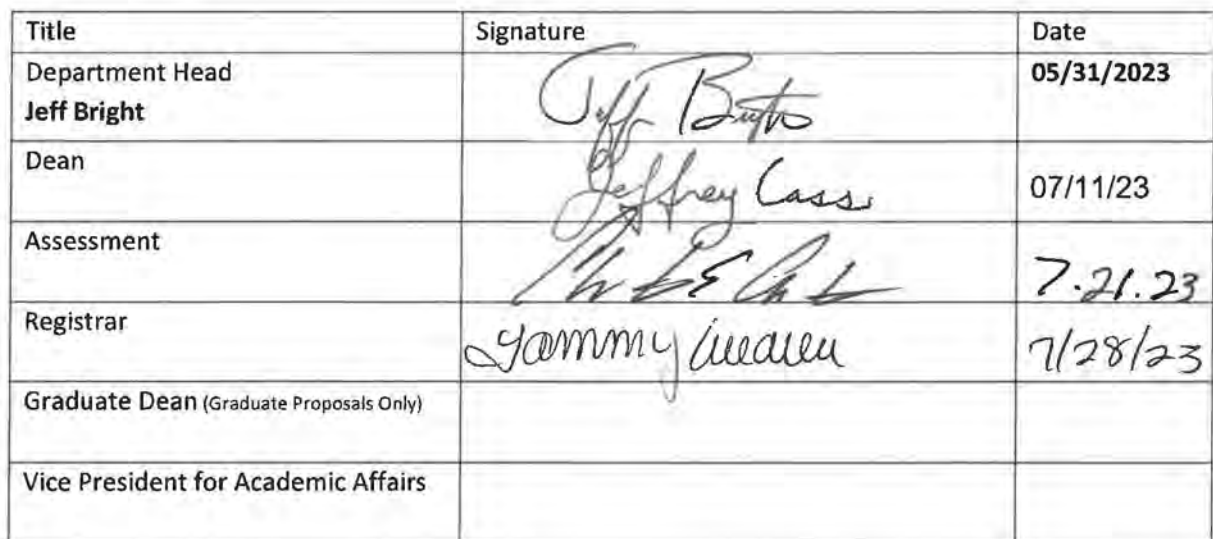 Title Signature Date
Department Head 05/31/2023
Jeff Bright Jeff
Dean Jeffrey Cass 07/11/23
Assessment 7.21.23
Registrar Tammy 7/28/23
Graduate Dean (Graduate Proposals Only)
Vice President for Academic Affairs